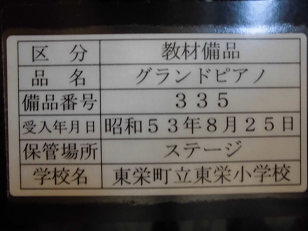 区分 教材備品
品名 グランドピアノ
備品番号 ３３５
受入年月日 昭和５３年８月２５日
保管場所 ステージ
学校名 東栄町立東栄小学校